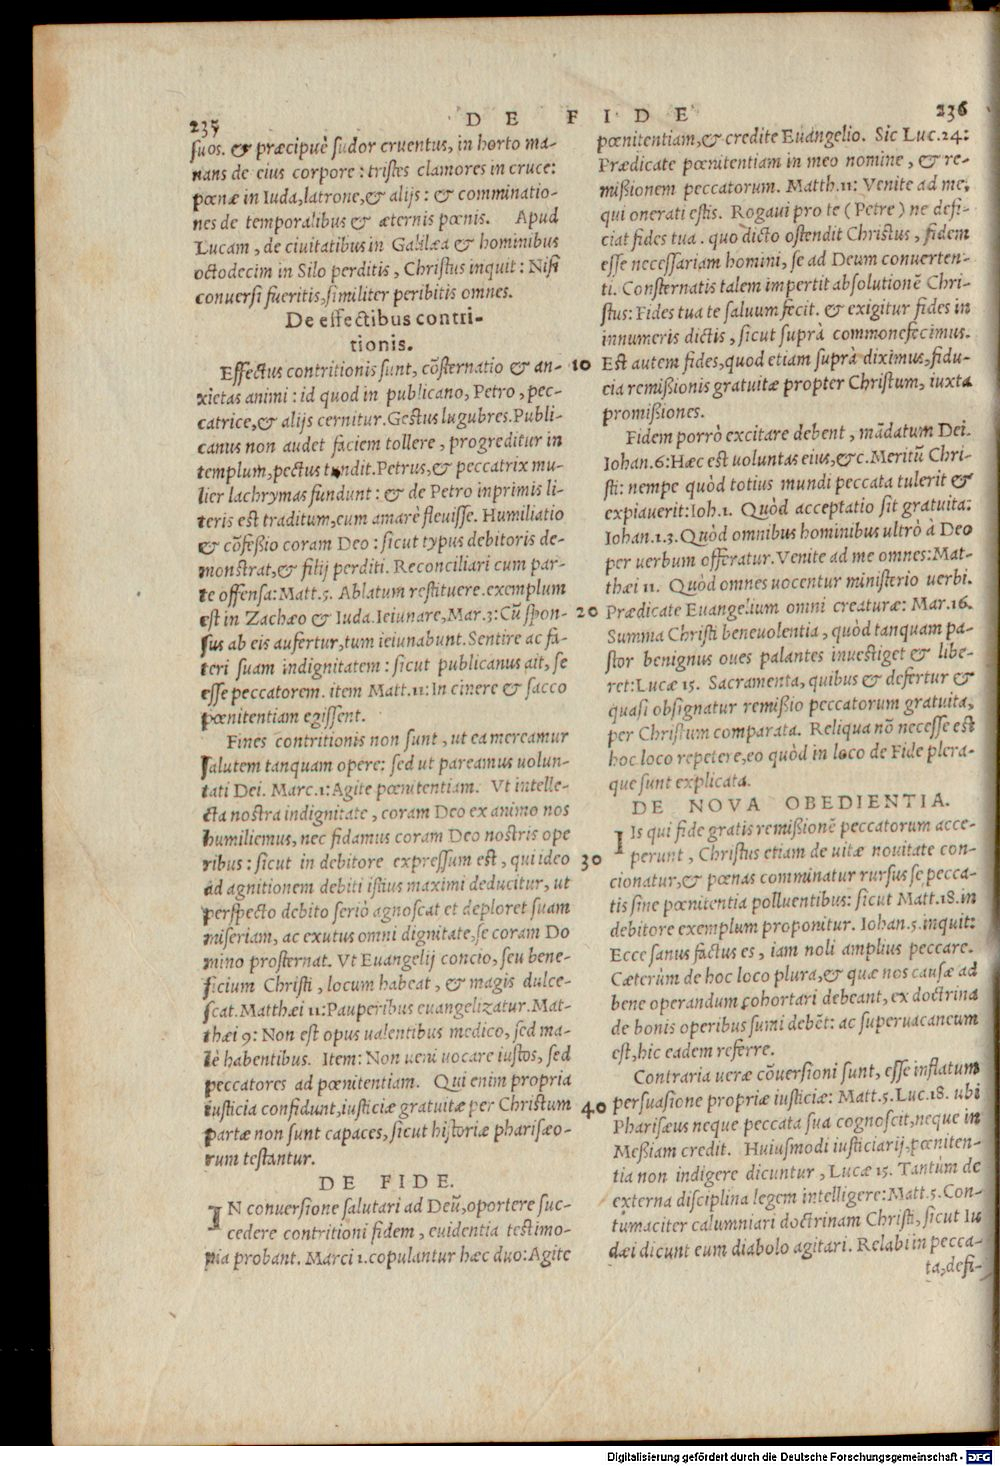 DE FIDE
235
suos. & præcipuè sudor cruentus, in horto ma-
nans de eius corpore: tristes clamores in cruce:
pœnæ in Iuda, latrone, & alijs: & comminatio-
nes de temporalibus & æternis pœnis. Apud
Lucam, de ciuitatibus in Galilæa & hominibus
octodecim in Silo perditis, Christus inquit: Nisi
conuersi fueritis, similiter peribitis omnes.
De effectibus contri-
tionis.
Effectus contritionis sunt, cōsternatio & an-
xietas animi: id quod in publicano, Petro, pec-
catrice, & alijs cernitur. Gestus lugubres. Publi-
canus non audet faciem tollere, progreditur in
templum, pectus tundit. Petrus, & peccatrix mu-
lier lachrymas fundunt: & de Petro inprimis li-
teris est traditum, eum amarè fleuisse. Humiliatio
& cōfeßio coram Deo: sicut typus debitoris de-
monstrat, & filij perditi. Reconciliari cum par-
te offensa: Matt. 5. Ablatum restituere. exemplum
est in Zachæo & Iuda. Ieiunare, Mar. 3: Cū spon-
sus ab eis aufertur, tum ieiunabunt. Sentire ac fa-
teri suam indignitatem: sicut publicanus ait, se
esse peccatorem. item Matt. 11: In cinere & sacco
pœnitentiam egissent.
Fines contritionis non sunt, ut ea mereamur
salutem tanquam opere: sed ut pareamus uolun-
tati Dei. Marc. 1: Agite pœnitentiam. Vt intelle-
cta nostra indignitate, coram Deo ex animo nos
humiliemus, nec fidamus coram Deo nostris ope
ribus: sicut in debitore expressum est, qui ideo
ad agnitionem debiti istius maximi deducitur, ut
perspecto debito seriò agnoscat et deploret suam
miseriam, ac exutus omni dignitate, se coram Do
mino prosternat. Vt Euangelij concio, seu bene-
ficium Christi, locum habeat, & magis dulce-
scat. Matthæi 11: Pauperibus euangelizatur. Mat-
thæi 9: Non est opus ualentibus medico, sed ma-
lè habentibus. Item: Non ueni uocare iustos, sed
peccatores ad pœnitentiam. Qui enim propria
iusticia confidunt, iusticiæ gratuitæ per Christum
partæ non sunt capaces, sicut historiæ pharisæo-
rum testantur.
DE FIDE.
IN conuersione salutari ad Deū, oportere suc-
cedere contritioni fidem, euidentia testimo-
nia probant. Marci 1. copulantur hæc duo: Agite
10
20
30
40
236
pœnitentiam, & credite Euangelio. Sic Luc. 24:
Prædicate pœnitentiam in meo nomine, & re-
mißionem peccatorum. Matth. 11: Venite ad me,
qui onerati estis. Rogaui pro te (Petre) ne defi-
ciat fides tua. quo dicto ostendit Christus, fidem
esse necessariam homini, se ad Deum conuerten-
ti. Consternatis talem impertit absolutionē Chri-
stus: Fides tua te saluum fecit. & exigitur fides in
innumeris dictis, sicut suprà commonefecimus.
Est autem fides, quod etiam suprà diximus, fidu-
cia remißionis gratuitæ propter Christum, iuxta
promißiones.
Fidem porrò excitare debent, mādatum Dei.
Iohan. 6: Hæc est uoluntas eius, &c. Meritū Chri-
sti: nempe quòd totius mundi peccata tulerit &
expiauerit: Ioh. 1. Quòd acceptatio sit gratuita:
Iohan. 1. 3. Quòd omnibus hominibus ultrò à Deo
per uerbum offeratur. Venite ad me omnes: Mat-
thæi 11. Quòd omnes uocentur ministerio uerbi.
Prædicate Euangelium omni creaturæ: Mar. 16.
Summa Christi beneuolentia, quòd tanquam pa-
stor benignus oues palantes inuestiget & libe-
ret: Lucæ 15. Sacramenta, quibus & defertur &
quasi obsignatur remißio peccatorum gratuita,
per Christum comparata. Reliqua nō necesse est
hoc loco repetere, eo quòd in loco de Fide plera-
que sunt explicata.
DE NOVA OBEDIENTIA.
IIs qui fide gratis remißionē peccatorum acce-
perunt, Christus etiam de uitæ nouitate con-
cionatur, & pœnas comminatur rursus se pecca-
tis sine pœnitentia polluentibus: sicut Matt. 18. in
debitore exemplum proponitur. Iohan. 5. inquit:
Ecce sanus factus es, iam noli amplius peccare.
Cæterùm de hoc loco plura, & quæ nos causæ ad
bene operandum cohortari debeant, ex doctrina
de bonis operibus sumi debēt: ac superuacaneum
est, hic eadem referre.
Contraria ueræ cōuersioni sunt, esse inflatum
persuasione propriæ iusticiæ: Matt. 5. Luc. 18. ubi
Pharisæus neque peccata sua cognoscit, neque in
Meßiam credit. Huiusmodi iusticiarij, pœniten-
tia non indigere dicuntur, Lucæ 15. Tantùm de
externa disciplina legem intelligere: Matt. 5. Con-
tumaciter calumniari doctrinam Christi, sicut Iu
dæi dicunt eum diabolo agitari. Relabi in pecca-
ta, defi-
Digitalisierung gefördert durch die Deutsche Forschungsgemeinschaft - DFG